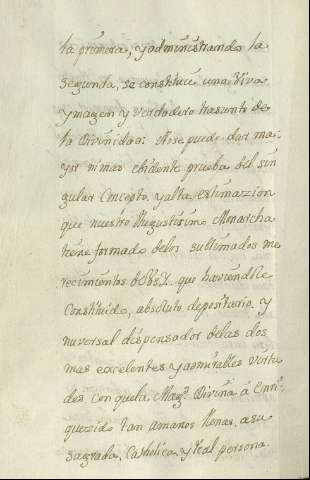 la primera, y administrando la
segunda, se constituie una Viva
ymagen y verdadero trasunto de
la Divinidad: No se puede dar ma-
yor ni mas ebidente prueba del sin
gular Concepto, y alta, estimazion
que nuestro Augustisimo Monarcha
tiene formado delos sublimados me
recimientos de V.S.Y. que haviendole
Constituido, absoluto depositario y
nuversal dispensador delas dos
mas excelentes y admirables virtu
des con que la Magd. Divina á Enri-
quezido tan amanos llenas, a su
sagrada, Catholica, y Real persona